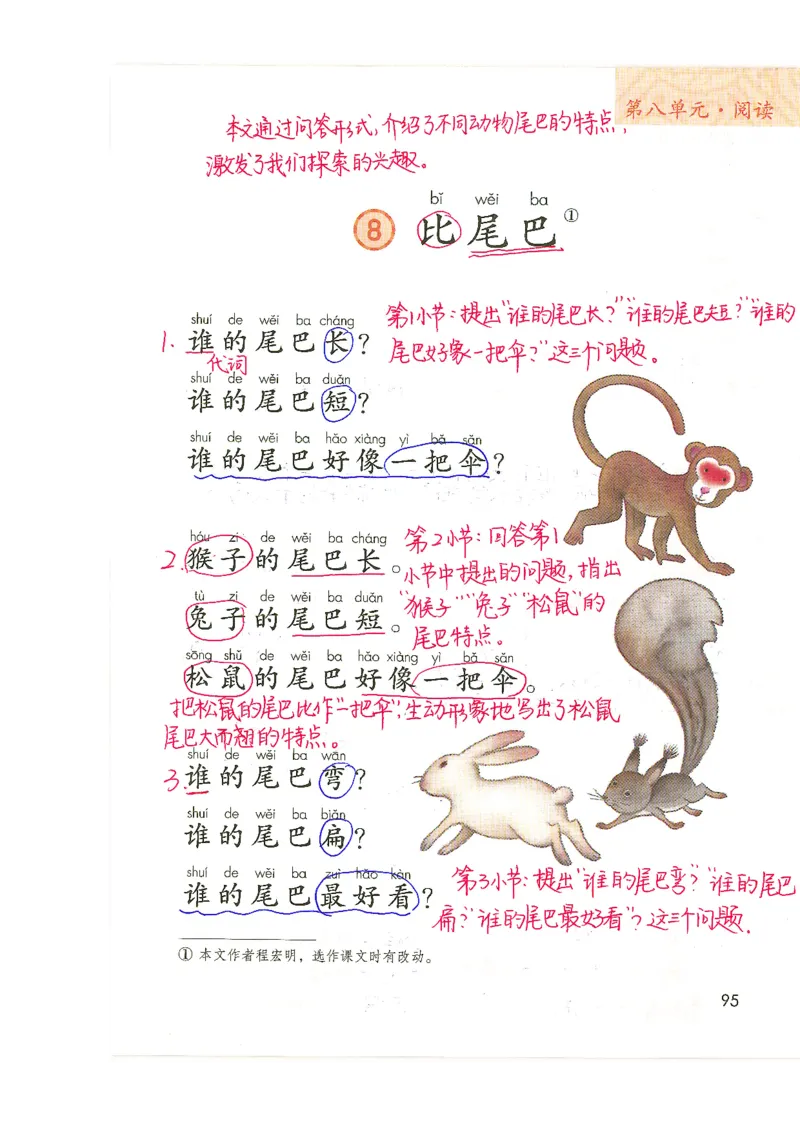 第八单元·阅读
本文通过问答形式,介绍了不同动物尾巴的特点,
激发了我们探索的兴趣。
bǐ wěi ba
8 比尾巴①
第1小节:提出“谁的尾巴长?”“谁的尾巴短?”“谁的
尾巴好像一把伞?”这三个问题。
shuí de wěi ba cháng
1. 谁的尾巴长?
代词
shuí de wěi ba duǎn
谁的尾巴短?
shuí de wěi ba hǎo xiàng yì bǎ sǎn
谁的尾巴好像一把伞?
第2小节:回答第1
小节中提出的问题,指出
“猴子”“兔子”“松鼠”的
尾巴特点。
hóu zi de wěi ba cháng
2. 猴子的尾巴长。
tù zi de wěi ba duǎn
兔子的尾巴短。
sōng shǔ de wěi ba hǎo xiàng yì bǎ sǎn
松鼠的尾巴好像一把伞。
把松鼠的尾巴比作“一把伞”,生动形象地写出了松鼠
尾巴大而翘的特点。
shuí de wěi ba wān
3. 谁的尾巴弯?
shuí de wěi ba biǎn
谁的尾巴扁?
shuí de wěi ba zuì hǎo kàn
谁的尾巴最好看?
第3小节:提出“谁的尾巴弯?”“谁的尾巴
扁?”“谁的尾巴最好看”?这三个问题.
① 本文作者程宏明,选作课文时有改动。
95